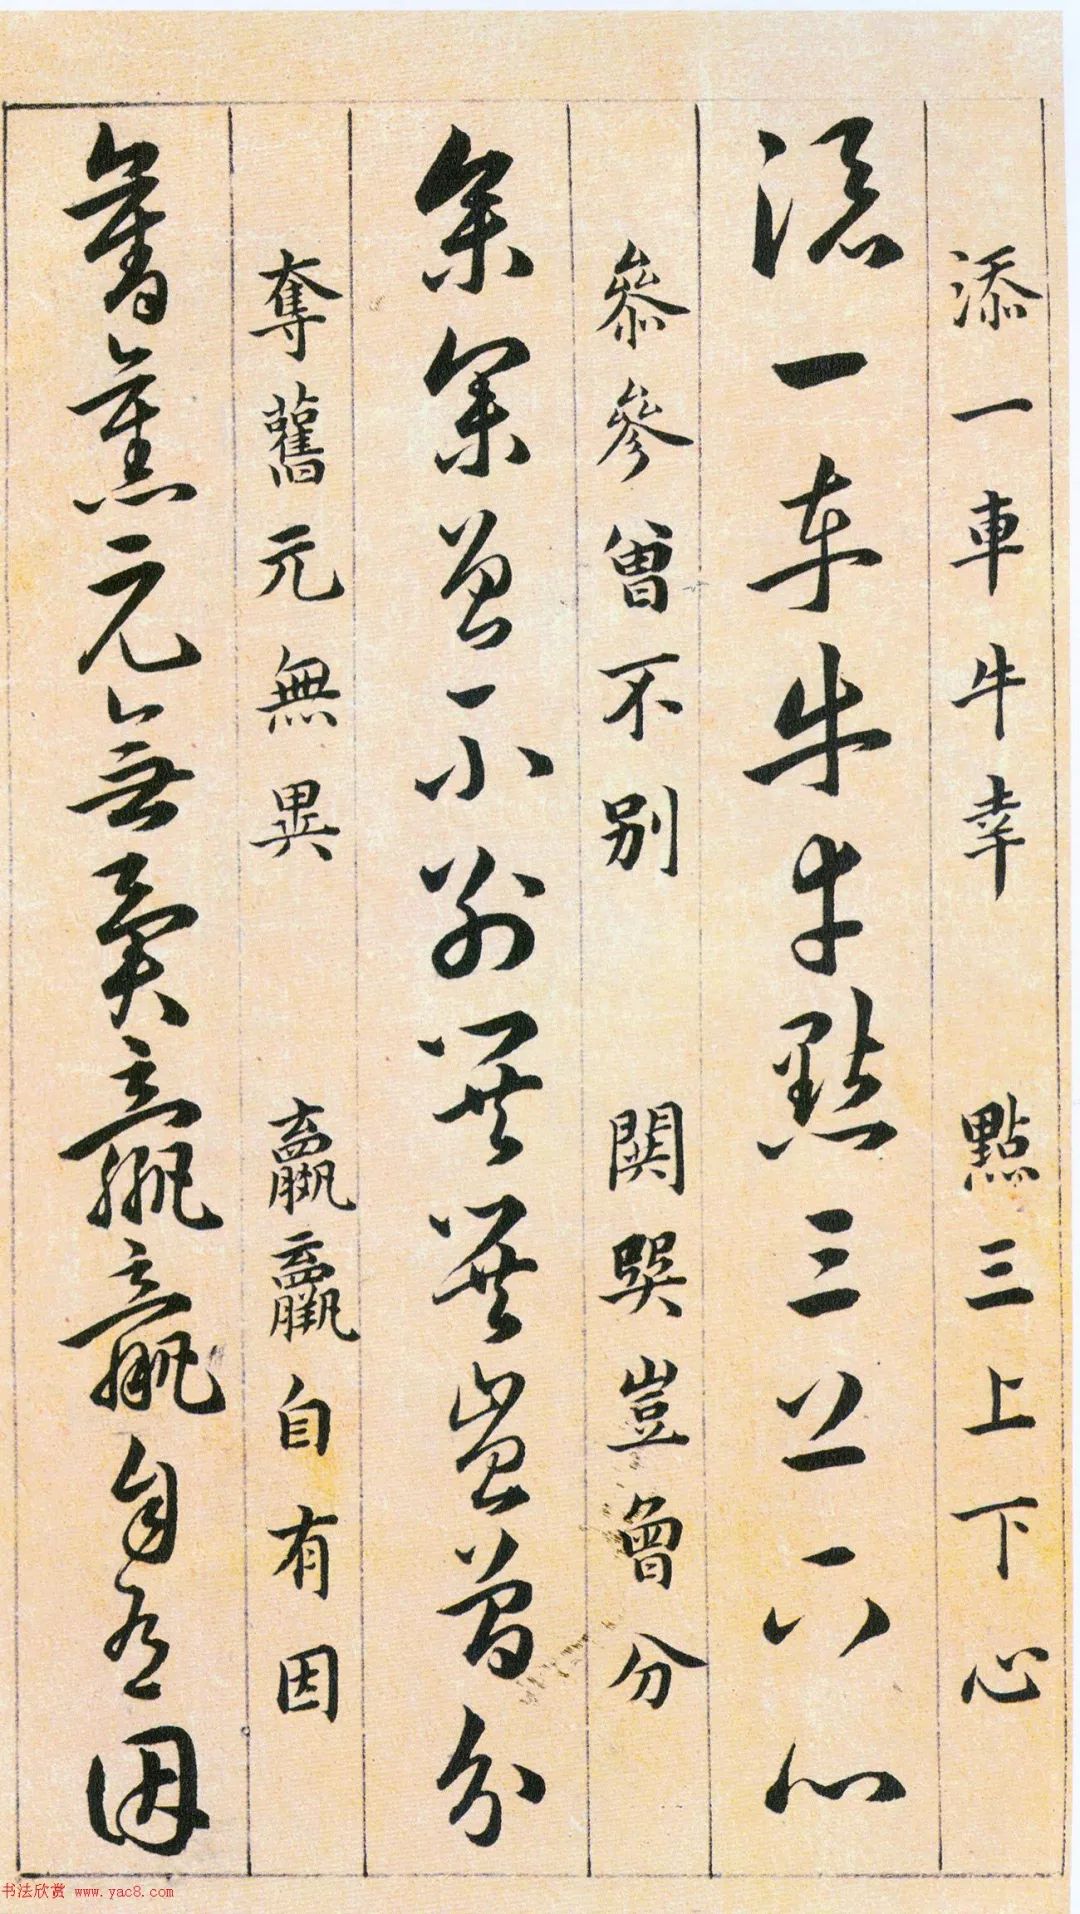 添一車牛幸 點三上下心
添一車牛幸點三上下心
叅參曾不别 閧豈曾分
叅參曾不别豈曾分
奪舊元無異 羸自有因
奪舊元無異羸自有因
书法欣赏 www.yac8.com